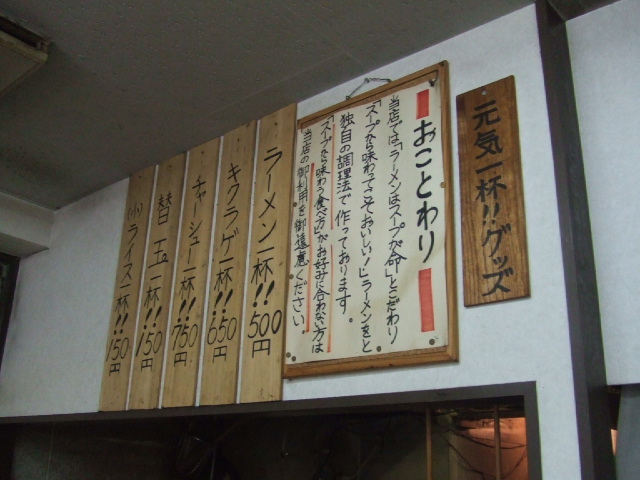 元気一杯!!グッズ
おことわり
当店では「ラーメンはスープが命」とこだわり
「スープから味わってこそおいしい!」ラーメンをと
独自の調理法で作っております。
「スープから味わう食べ方」がお好みに合わない方は
当店の御利用を御遠慮ください。
ラーメン一杯!!500円
キクラゲ一杯!!650円
チャーシュー一杯!!750円
替玉一杯!!150円
(小)ライス一杯!!150円